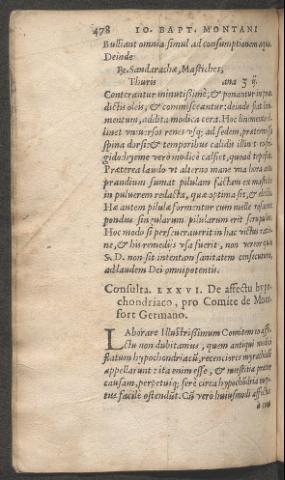 478 IO. BAPT. MONTANI
Bulliant omnia simul ad consumptionem aquæ.
Deinde
℞. Sandarachæ, Mastiches,
Thuris ana ʒ ij.
Conterantur minutissimè, & ponantur in præ
dictis oleis, & commisceantur: deinde fiat lini
mentum, addita modica cera. Hoc linimento
linet universos renes usq; ad sedem, prætermissa
spina dorsi: & temporibus calidis illinat
gido: hyeme verò modicè calfiet, quoad tepescat.
Præterea laudo ut alterno mane una hora ante
prandium sumat pilulam factam ex mastiche
in pulverem redacta, quæ optima sit, &
Hæ autem pilulæ formentur cum melle rosaceo
pondus singularum pilularum erit scrupuli
Hoc modo si perseveraverit in hac victus ratio
ne, & his remedijs usa fuerit, non vereor quin
S. D. non sit intentam sanitatem consecutura,
ad laudem Dei omnipotentis.
Consulta. LXXXVI. De affectu hypo
chondriaco, pro Comite de Mont
fort Germano.
LAborare Illustrissimum Comitem eo affe
ctu non dubitamus, quem antiqui medici
flatum hypochondriacū, recentiores myrachialē
appellarunt: ita enim esse, & mœstitia præter
causam, perpetuiq; ferè circa hypochōdria rugi
tus facilè ostendūt. Cū verò huiusmodi affectus